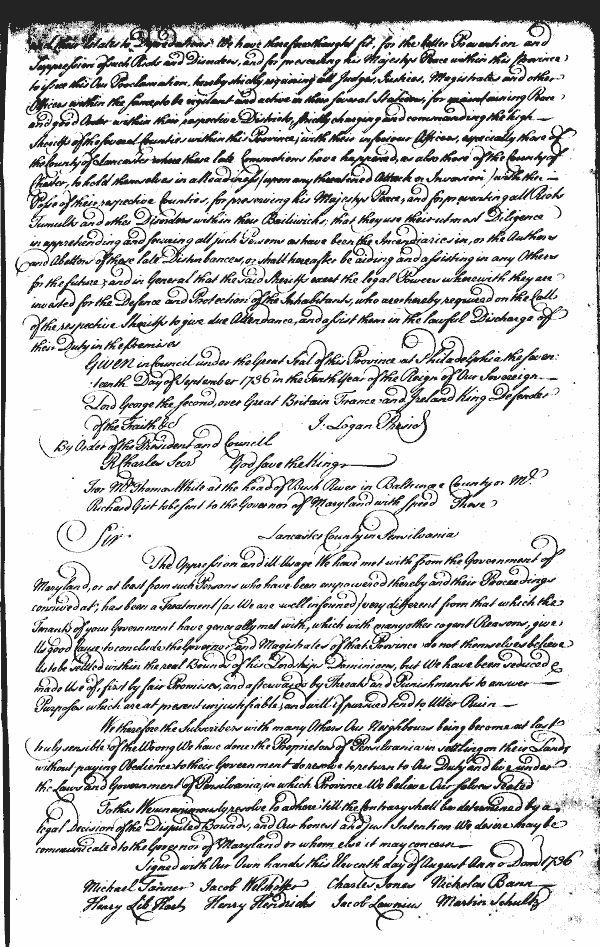 and their Estates to Depredations. We have therefore thought fit, for the better Prevention and
Suppression of such Riots and Disorders, and for preserving his Majestys Peace within this Province
to issue this Our Proclamation, hereby strictly enjoining all Judges, Justices, Magistrates and other
Officers within the same, to be vigilant and active in their several Stations, for maintaining Peace
and good Order within their respective Districts, strictly charging and commanding the high
Sheriffs of the several Counties within this Province, with their inferiour Officers, especially those of
the County of Lancaster where these late Commotions have happened, as also those of the County of
Chester, to hold themselves in a Readiness (upon any threatened Attack or Invasion) with the
Posse of their respective Counties, for preserving his Majestys Peace, and for preventing all Riots
Tumults and other Disorders within their Bailiwicks, that they use their utmost Diligence
in apprehending and securing all such Persons as have been the Incendiaries in, or the Authors
and Abettors of those late Disturbances, or shall hereafter be aiding and assisting in any Others
for the future, and in General that the said Sheriffs exert the legal Powers wherewith they are
invested for the Defence and Protection of the Inhabitants, who are hereby required on the Call
of the respective Sheriffs to give due Attendance, and assist them in the lawful Discharge of
their Duty in the Premises
Given in Council under the Great Seal of this Province at Philadelphia the seven
teenth Day of September 1736 in the Tenth Year of the Reign of Our Sovereign
Lord George the second, over Great Britain France and Ireland King Defender
of the Faith &c J. Logan Presid
By Order of the President and Council
R Charles Secr God save the King
For Mr Thomas White at the head of Bush River in Baltimore County or Mr
Richard Gist to be sent to the Governor of Maryland with speed These
Sir Lancaster County in Pensilvania
The Oppression and ill Usage We have met with from the Government of
Maryland, or at least from such Persons who have been empowered thereby and their Proceedings
connived at, has been a Treatment (as We are well informed) very different from that which the
Tenants of your Government have generally met with, which with many other cogent Reasons, give
Us good Cause to conclude the Governor and Magistrates of that Province do not themselves believe
Us to be settled within the real Bounds of his Lordships Dominions, but We have been seduced &
made Use of, first by fair Promises, and afterwards by Threats and Punishments to answer
Purposes which are at present unjustifiable, and will if pursued tend to Utter Ruin
We therefore the Subscribers with many Others Our Neighbours being become at last
truly sensible of the Wrong We have done the Proprietors of Pensilvania in settling on their Lands
without paying Obedience to their Government do resolve to return to Our Duty and live under
the Laws and Government of Pensilvania, in which Province We believe Our selves seated
To this We unanimously resolve to adhere 'till the contrary shall be determined by a
legal Decision of the Disputed Bounds, and Our honest and just Intention We desire may be
communicated to the Governor of Maryland or whom else it may concern
Signed with Our Own hands this Eleventh day of August Anno Dom 1736
Michael Tanner Jacob Welshoffer Charles Jones Nicholas Bann
Henry Lib Hart Henry Hendricks Jacob Lawnius Martin Schultz